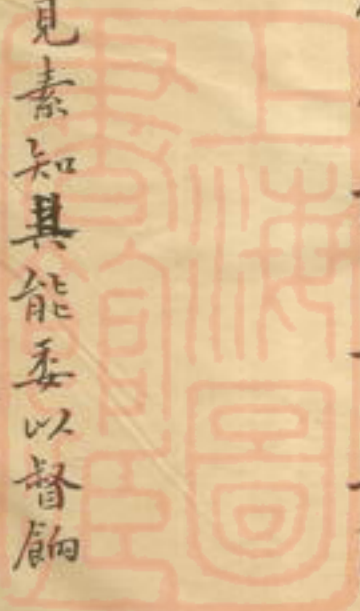 見素知其能委以督餉
上海圖
書館藏